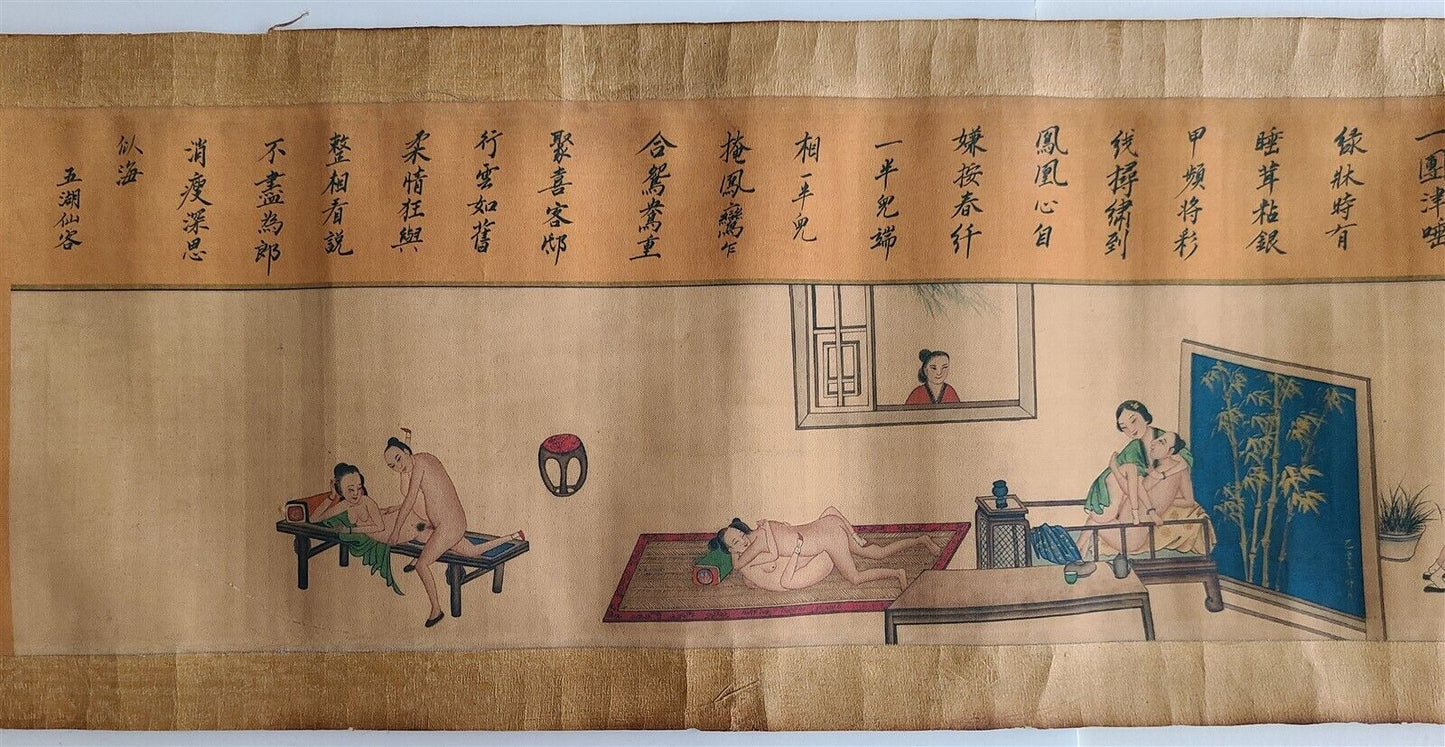 一團津唾
緑牀時有
睡茸粘銀
甲頻將彩
线撏绣到
鳳凰心自
嫌按春纤
一半兒端
相一半兒
掩鳳鸞乍
合鴛鴦重
聚喜客邸
行雲如舊
柔情狂與
整相看説
不盡為郎
消瘦深思
似海
五湖仙客